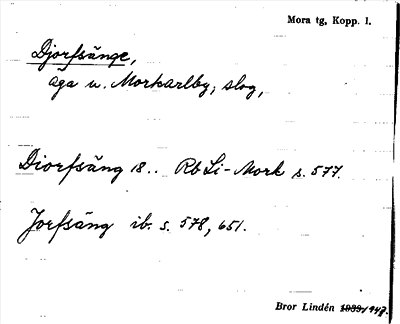 Mora tg, Kopp. l.
Djorfsänge,
äga u. Morkarlby, slog,
Diorfsäng 18.. Rb Li-Mork s. 577.
Jorfsäng ib. s. 578, 651.
Bror Lindén 1939/1947.